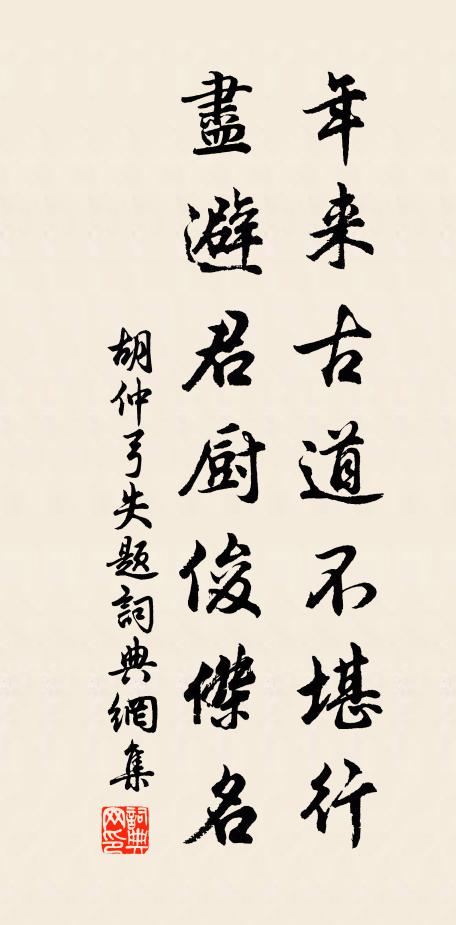 年来古道不堪行
盡避君厨俊傑名
胡仲弓失题詞典網集
詞典网印